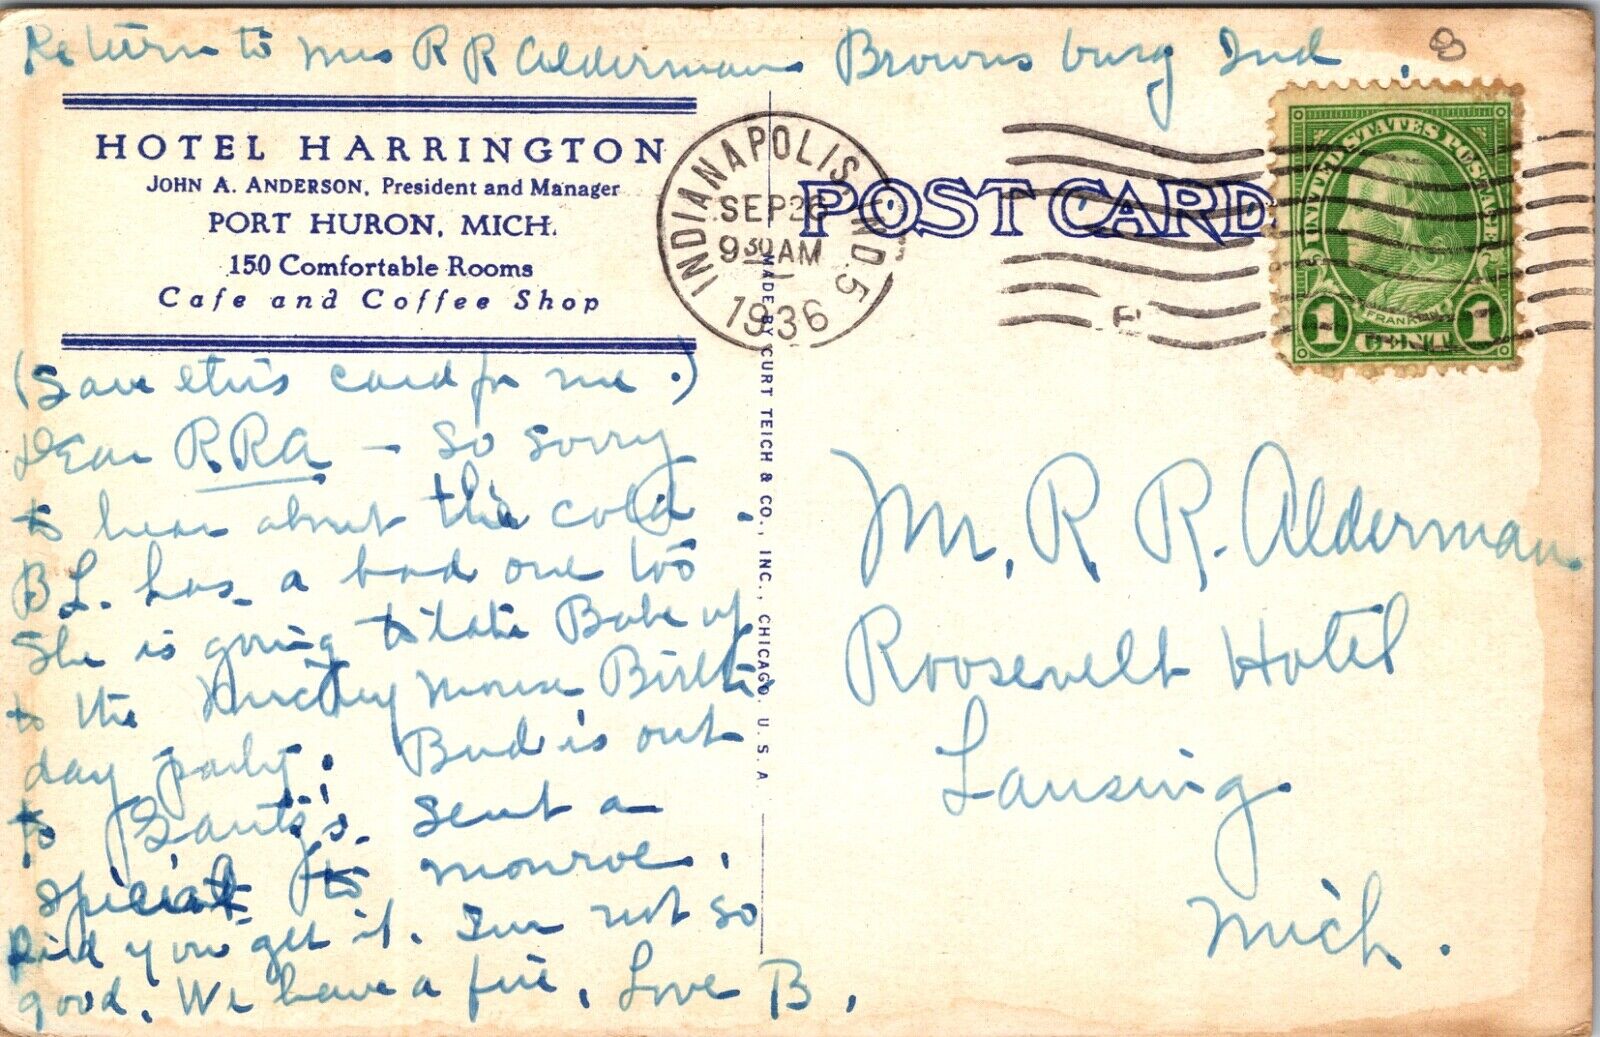 Return to Mrs R R Alderman Brownsburg Ind.
HOTEL HARRINGTON
JOHN A. ANDERSON, President and Manager
PORT HURON, MICH.
150 Comfortable Rooms
Cafe and Coffee Shop
(Save this card for me.)
Dear R.R.A. – So sorry
to hear about the cold.
B L. has a bad one too
She is going to take Babe up
to the Mickey Mouse Birth
day party. Bud is out
to Santy's. Sent a
special to Monroe.
Did you get it. I'm not so
good. We have a fire. Love B.
INDIANAPOLIS, IND. 5
SEP 26
9 30 AM
1936
POST CARD
MADE BY CURT TEICH & CO., INC., CHICAGO, U.S.A.
UNITED STATES POSTAGE
FRANKLIN
1 CENT 1
Mr. R R. Alderman
Roosevelt Hotel
Lansing
Mich.